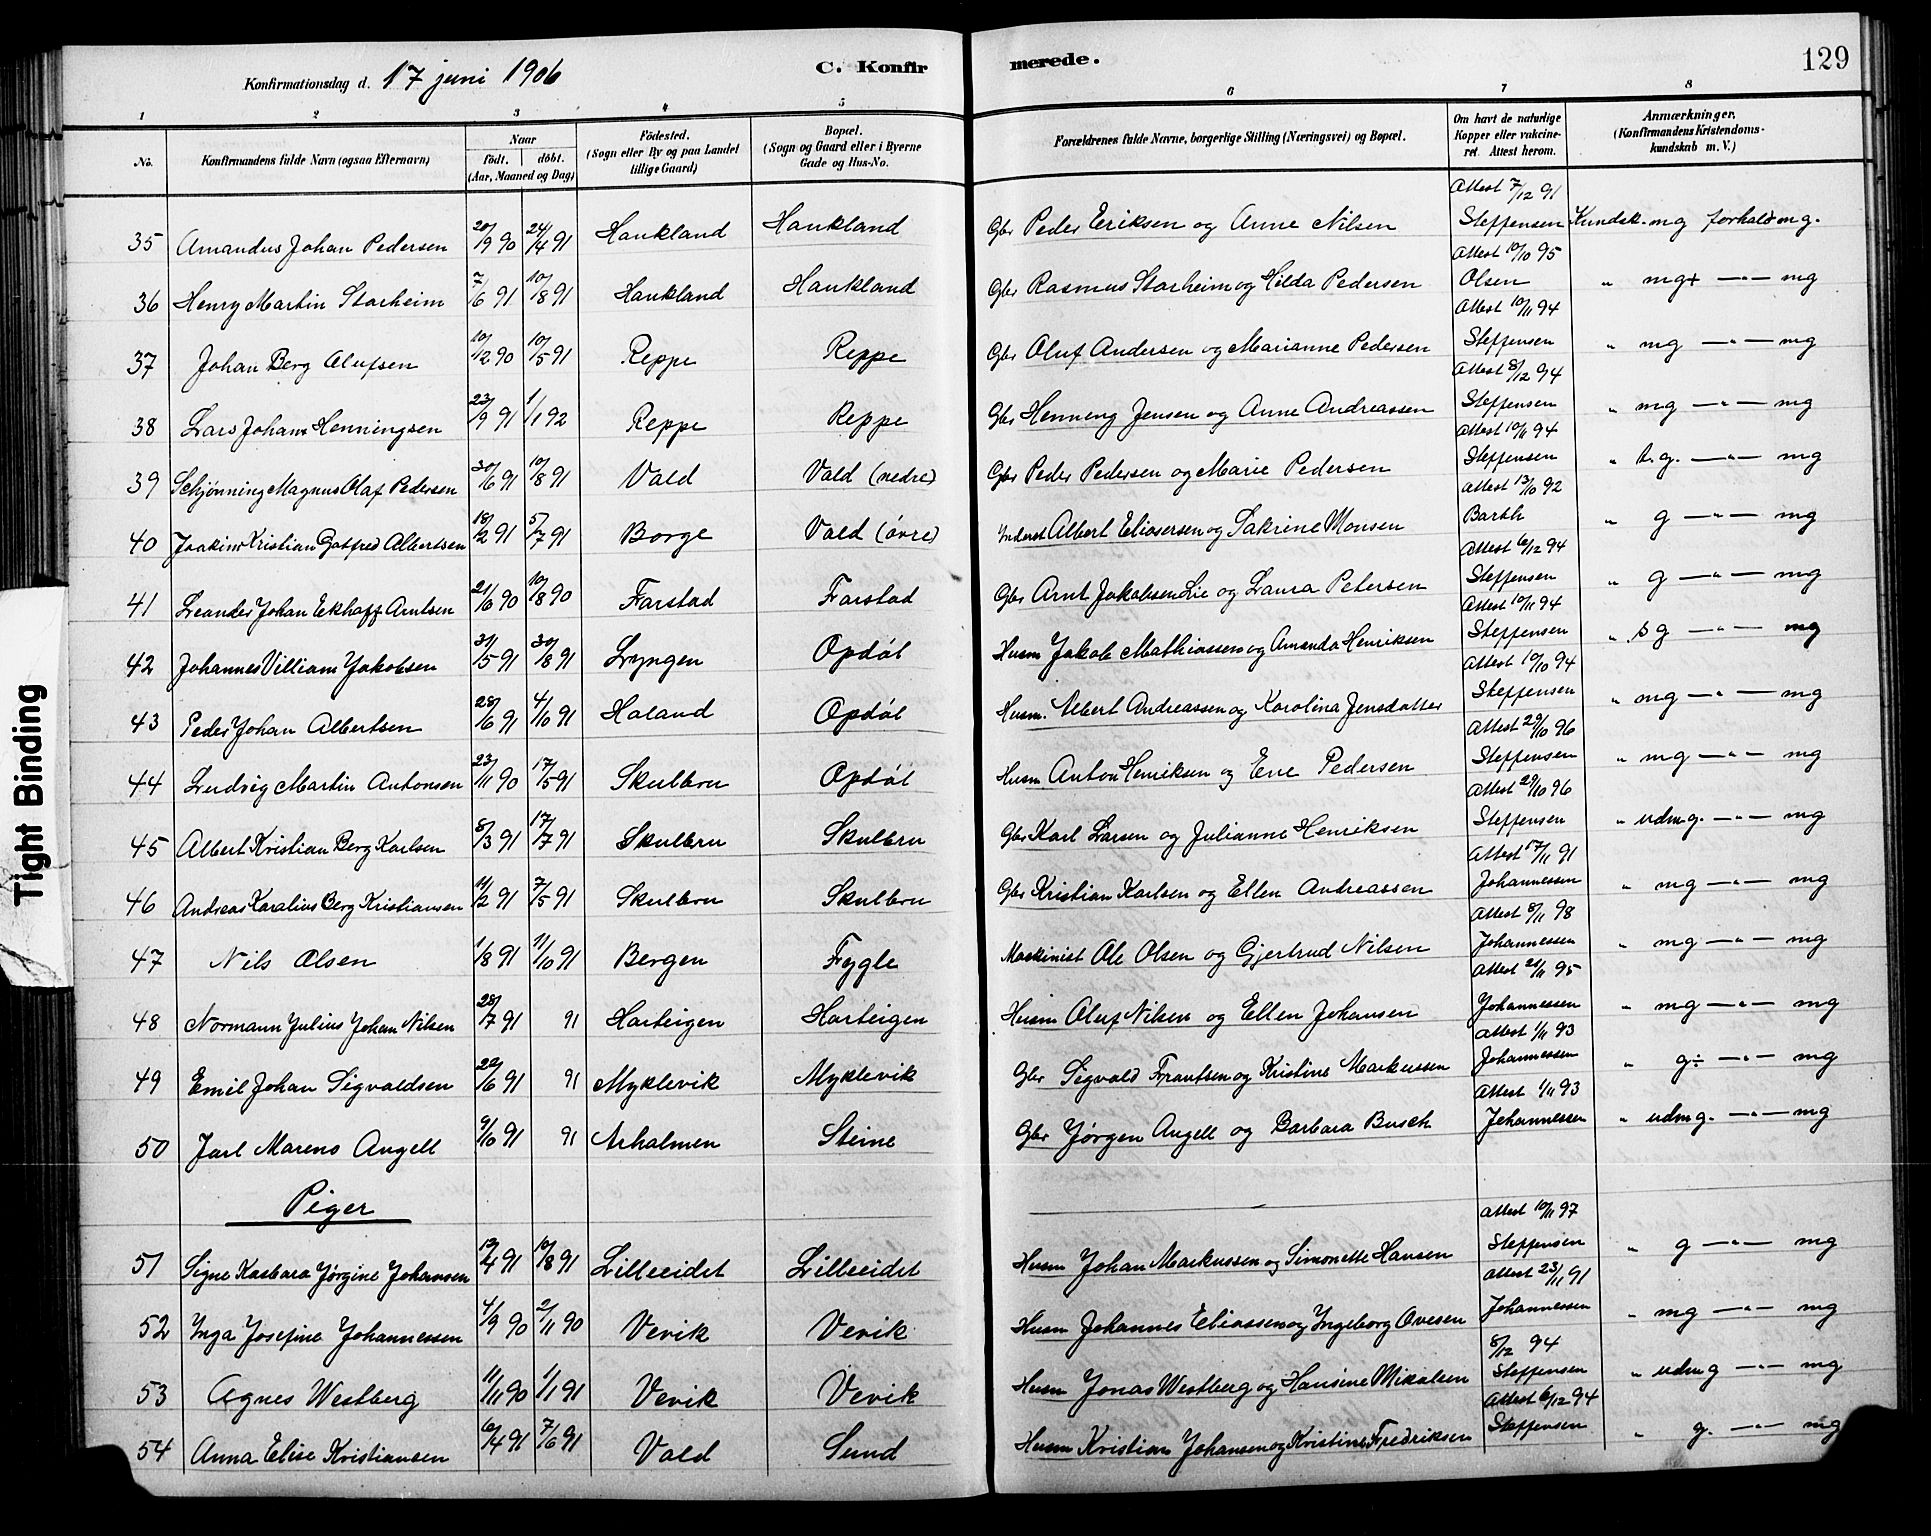 Konfirmationsdag d. 17 juni 1906 C. Konfirmerede. 129
1 2 3 4 5 6 7 8
No. Konfirmandens fulde Navn (ogsaa Efternavn) Naar födt. döbt. (Aar, Maaned og Dag) Födested. (Sogn eller By og paa Landet tillige Gaard) Bopæl. (Sogn og Gaard eller i Byerne Gade og Hus-No. Forældrenes fulde Navne, borgerlige Stilling (Næringsvei) og Bopæl. Om havt de naturlige Kopper eller vakcineret. Attest herom. Anmærkninger. (Konfirmandens Kristendomskundskab m. V.)
35 Amandus Johan Pedersen 20/9 90 24/4 91 Haukland Haukland Gbr Peder Eriksen og Anne Nilsen Attest 7/12 91 Steffensen Kundsk. mg forhold mg.
36 Henry Martin Starheim 7/6 91 10/8 91 Haukland Haukland Gbr Rasmus Starheim og Hilda Pedersen Attest 10/10 95 Olsen " mg+ —"— mg
37 Johan Berg Olufsen 10/12 90 10/5 91 Reppe Reppe Gbr Oluf Andersen og Marianne Pedersen Attest 10/11 94 Steffensen " mg —"— mg
38 Lars Johan Henningsen 23/9 91 1/1 92 Reppe Reppe Gbr Henning Jensen og Anne Andreassen Attest 8/12 94 Steffensen " mg —"— mg
39 Schjønning Magnus Olaf Pedersen 30/6 91 10/8 91 Vald Vald (nedre) Gbr Peder Pedersen og Marie Pedersen Attest 10/11 94 Steffensen " t.g. —"— mg
40 Joakim Kristian Gotfred Albertsen 18/2 91 5/7 91 Borge Vald (övre) Inderst Albert Eliasersen og Sakrine Monsen Attest 13/10 92 Barth " g —"— mg
41 Leander Johan Ekhoff Arntsen 21/6 90 10/8 90 Farstad Farstad Gbr Arnt Jakobsen Lie og Laura Petersen Attest 6/12 94 Steffensen " g —"— mg
42 Johannes Villiam Jakobsen 31/5 91 30/8 91 Lyngen Opdöl Husm Jakob Mathiassen og Amanda Henriksen Attest 10/11 94 Steffensen " s g —"— mg
43 Peder Johan Albertsen 28/6 91 4/10 91 Holand Opdöl Husm. Albert Andreassen og Karolina Jensdatter Attest 10/10 94 Steffensen " mg —"— mg
44 Ludvig Martin Antonsen 23/11 90 17/5 91 Skulbru Opdöl Husm Anton Henriksen og Ene Pedersen Attest 29/10 96 Steffensen " mg —"— mg
45 Albert Kristian Berg Karlsen 8/3 91 17/7 91 Skulbru Skulbru Gbr Karl Larsen og Julianne Henriksen Attest 29/10 96 Steffensen " udm.g. —"— mg
46 Andreas Karalius Berg Kristiansen 11/2 91 7/5 91 Skulbru Skulbru Gbr Kristian Karlsen og Ellen Andreassen Attest 17/11 91 Johannessen " mg —"— mg
47 Nils Olsen 1/8 91 11/10 91 Bergen Fygle Maskinist Ole Olsen og Gjertrud Nilsen Attest 8/11 98 Johannessen " mg —"— mg
48 Normann Julius Johan Nilsen 28/7 91 91 Harteigen Harteigen Husm Oluf Nilsen og Ellen Johansen Attest 21/11 95 Johannessen " mg —"— mg
49 Emil Johan Sigvaldsen 22/6 91 91 Myklevik Myklevik Gbr Sigvald Frantsen og Kristine Markussen Attest 1/11 93 Johannessen " g÷ —"— mg
50 Jarl Marens Angell 9/10 91 91 Arholmen Steine Gbr Jørgen Angell og Barbara Busch Attest 1/11 93 Johannessen " udm g. —"— mg
Piger
51 Signe Kasbara Jørgine Johansen 13/4 91 10/8 91 Lilleeidet Lilleeidet Husm Johan Markussen og Simonette Hansen Attest 10/11 97 Steffensen " g —"— mg
52 Inga Josefine Johannessen 4/9 90 2/11 90 Vevik Vevik Husm Johannes Eliassen og Ingeborg Ovesen Attest 23/11 91 Johannessen " mg —"— mg
53 Agnes Westberg 11/11 90 1/1 91 Vevik Vevik Husm Jonas Westberg og Hansine Mikalsen 8/12 94 Steffensen " udm g —"— mg
54 Anna Elise Kristiansen 6/4 91 7/6 91 Vald Sund Husm Kristian Johansen og Kristine Fredriksen Attest 6/12 94 Steffensen " g. —"— mg
Tight Binding